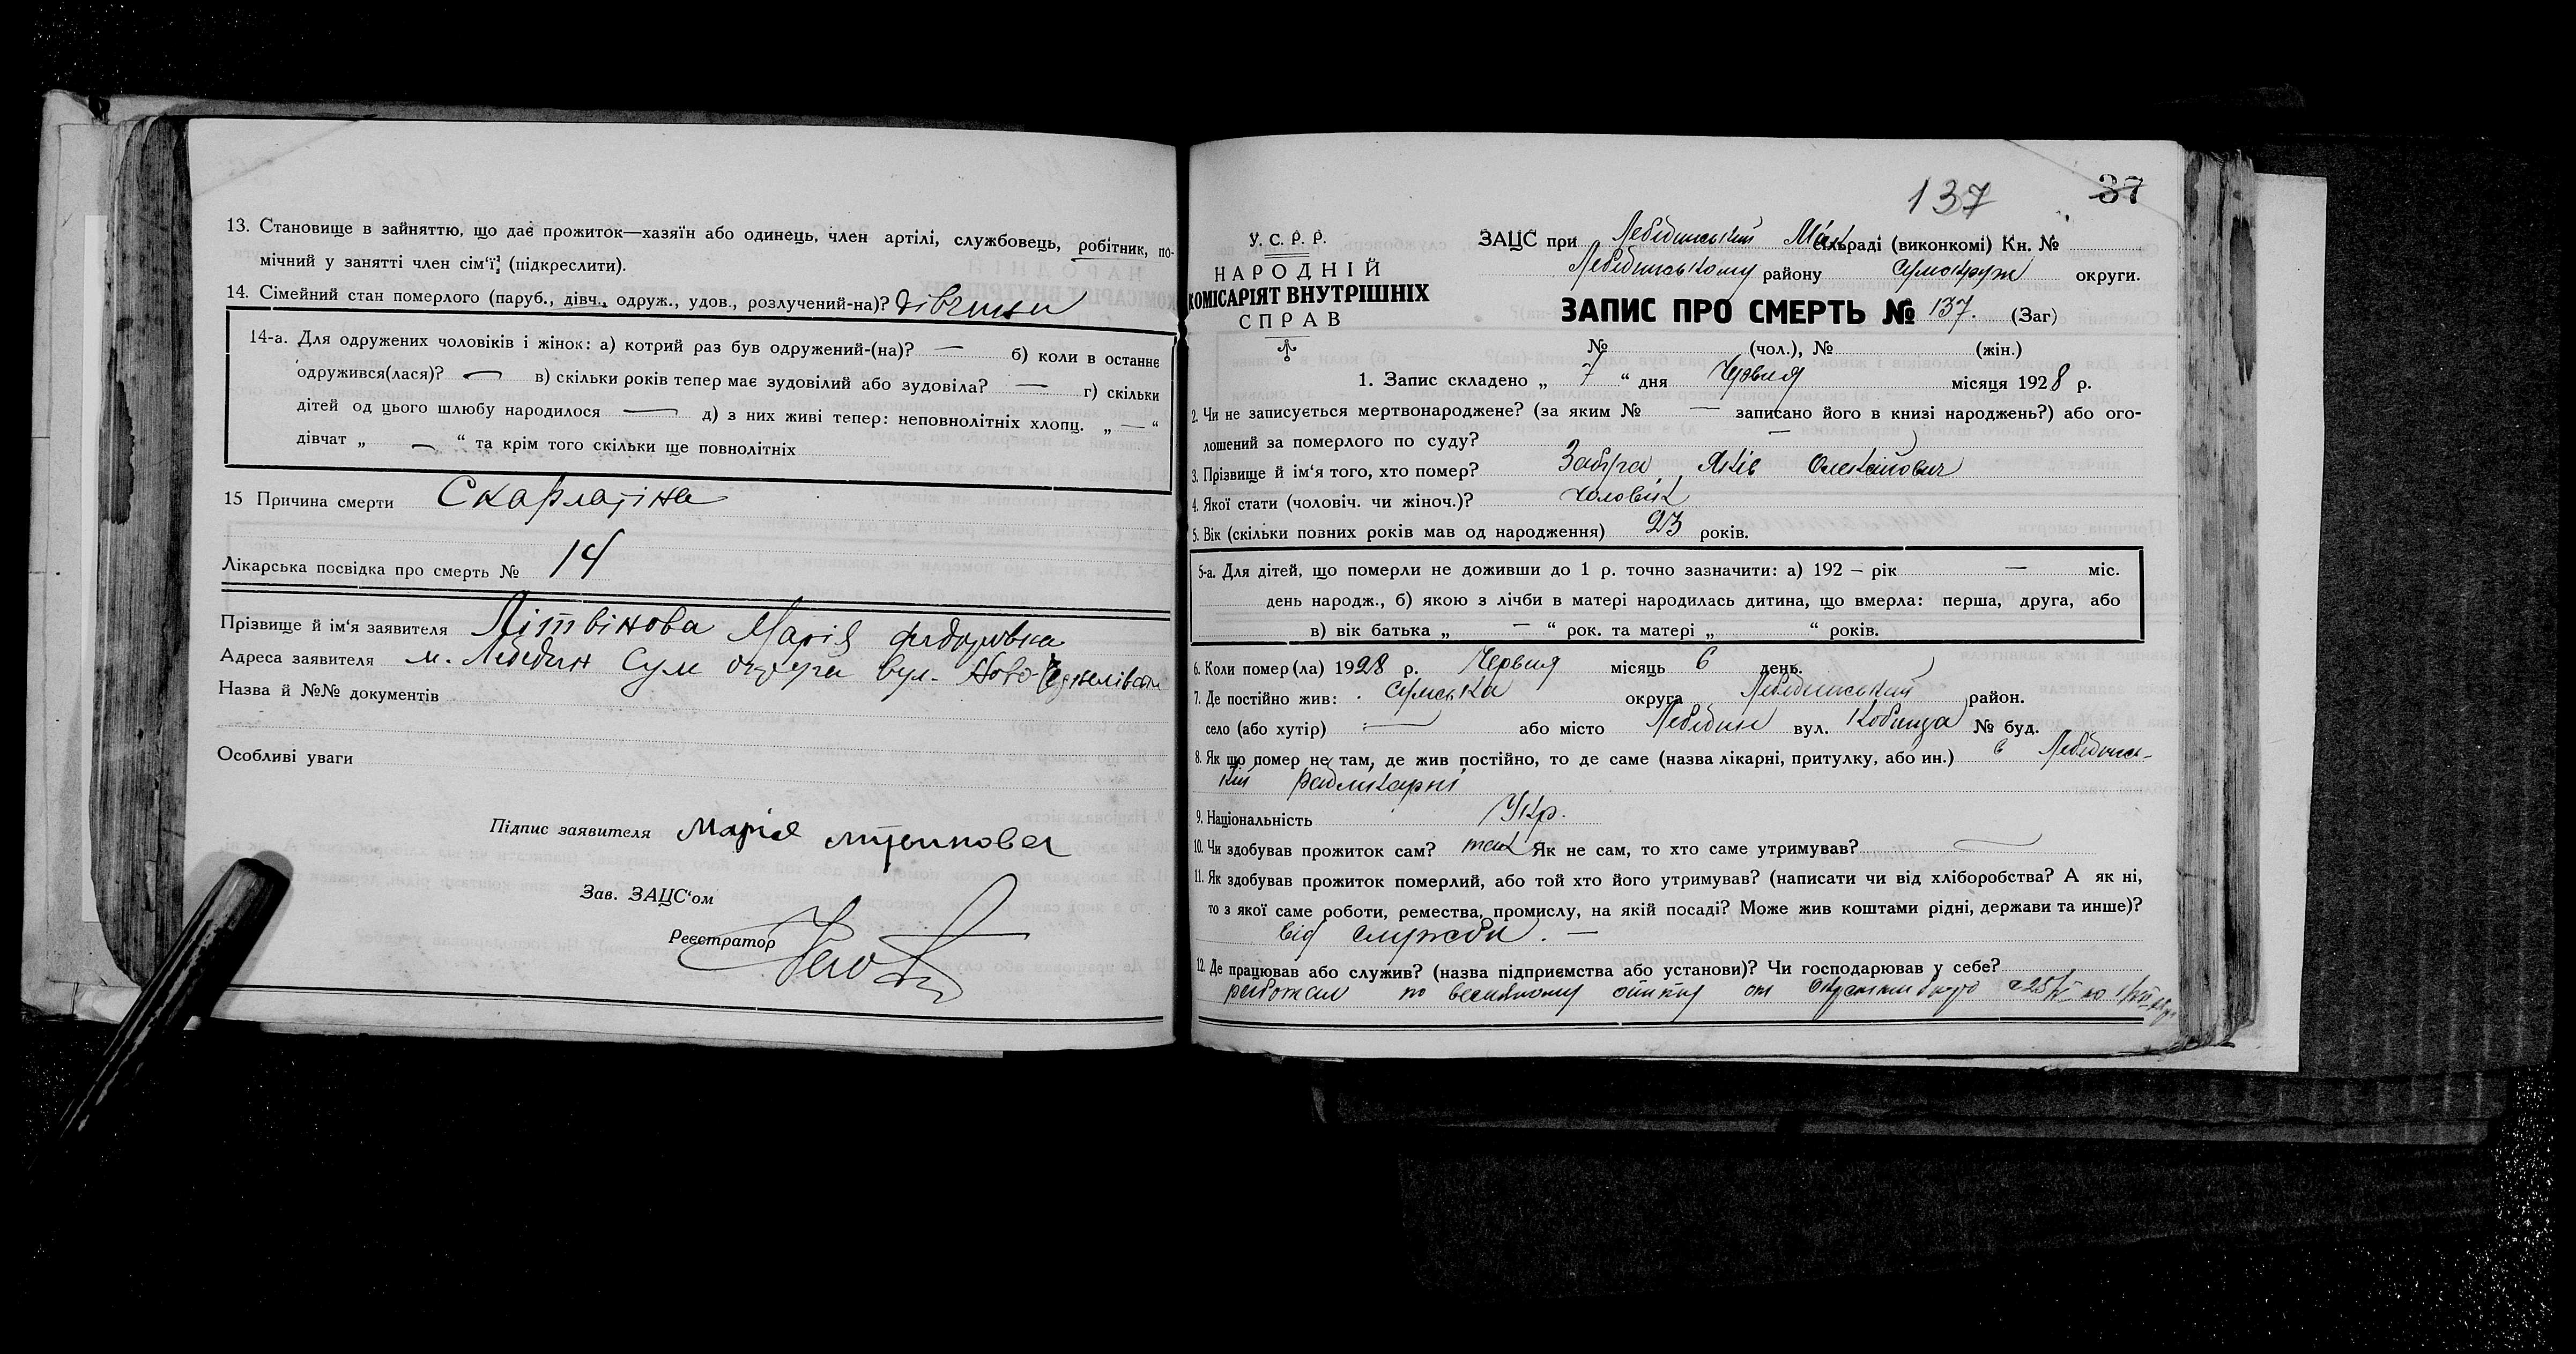 13. Становище в зайняттю, що дає прожиток—хазяїн або одинець, член артілі, службовець, робітник, по-
мічний у занятті член сім'ї, (підкреслити).
14. Сімейний стан померлого (паруб., дівч., одруж., удов., розлучений-на)? Дівчина
14-а. Для одружених чоловіків і жінок: а) котрий раз був одружений-(на)? — б) коли в останнє
одружився(лася)? — в) скільки років тепер має зудовілий або зудовіла? — г) скільки
дітей од цього шлюбу народилося — д) з них живі тепер: неповнолітніх хлопц. „ — “
дівчат „ — “ та крім того скільки ще повнолітніх
15 Причина смерти Скарлатіна
Лікарська посвідка про смерть № 14
Прізвище й ім'я заявителя Літвінова Марія Федоровна
Адреса заявителя м. Лебедин Сум округи вул. Ново-
Назва й №№ документів
Особливі уваги
Підпис заявителя Марія Литвинова
Зав. ЗАЦС'ом
Реєстратор
137 37
У. С. Р. Р.
НАРОДНІЙ
КОМІСАРІЯТ ВНУТРІШНІХ
СПРАВ
ЗАЦС при Лебединський Міськ сільраді (виконкомі) Кн. №
Лебединському району Сумокруж округи.
ЗАПИС ПРО СМЕРТЬ № 137. (Заг)
№ (чол.), № (жін.)
1. Запис складено „ 7 “ дня Червня місяця 1928 р.
2. Чи не записується мертвонароджене? (за яким № — записано його в книзі народжень?) або ого-
лошений за померлого по суду? —
3. Прізвище й ім'я того, хто помер? Яків Олексійович
4. Якої стати (чоловіч. чи жіноч.)? Чоловік
5. Вік (скільки повних років мав од народження) 23 років.
5-а. Для дітей, що померли не доживши до 1 р. точно зазначити: а) 192 — рік — міс.
день народж., б) якою з лічби в матері народилась дитина, що вмерла: перша, друга, або
в) вік батька „ — “ рок. та матері „ “ років.
6. Коли помер(ла) 1928 р. Червня місяць 6 день.
7. Де постійно жив: Сумська округа Лебединський район.
село (або хутір) — або місто Лебедин вул. Кобища № буд.
8. Як що помер не там, де жив постійно, то де саме (назва лікарні, притулку, або ин.) в Лебединсь-
кій радлікарні
9. Національність Укр.
10. Чи здобував прожиток сам? так Як не сам, то хто саме утримував? —
11. Як здобував прожиток померлий, або той хто його утримував? (написати чи від хліборобства? А як ні,
то з якої саме роботи, ремества, промислу, на якій посаді? Може жив коштами рідні, держави та инше)?
від служби. —
12. Де працював або служив? (назва підприємства або установи)? Чи господарював у себе?
работал по